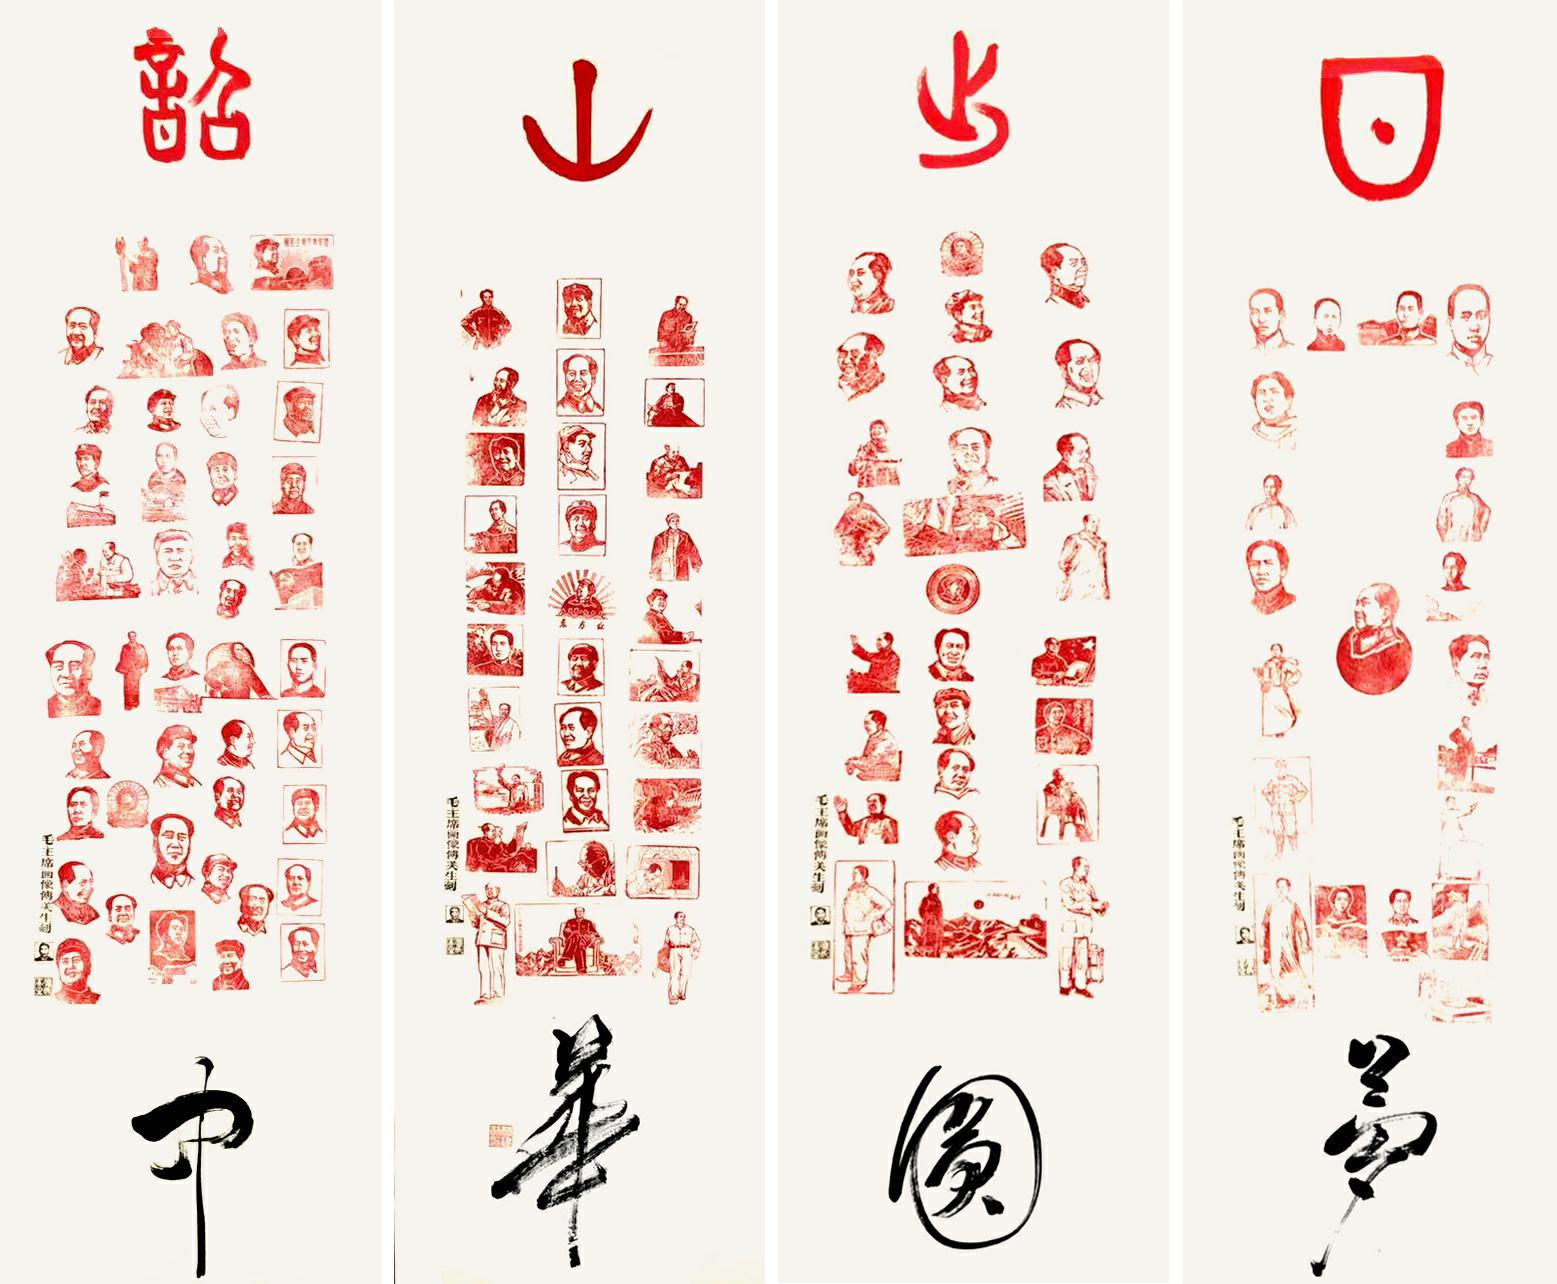 韶
山
出
日
东方红
毛主席画像傅关生刻
毛主席画像傅关生刻
毛主席画像傅关生刻
毛主席画像傅关生刻
中
華
圓
夢